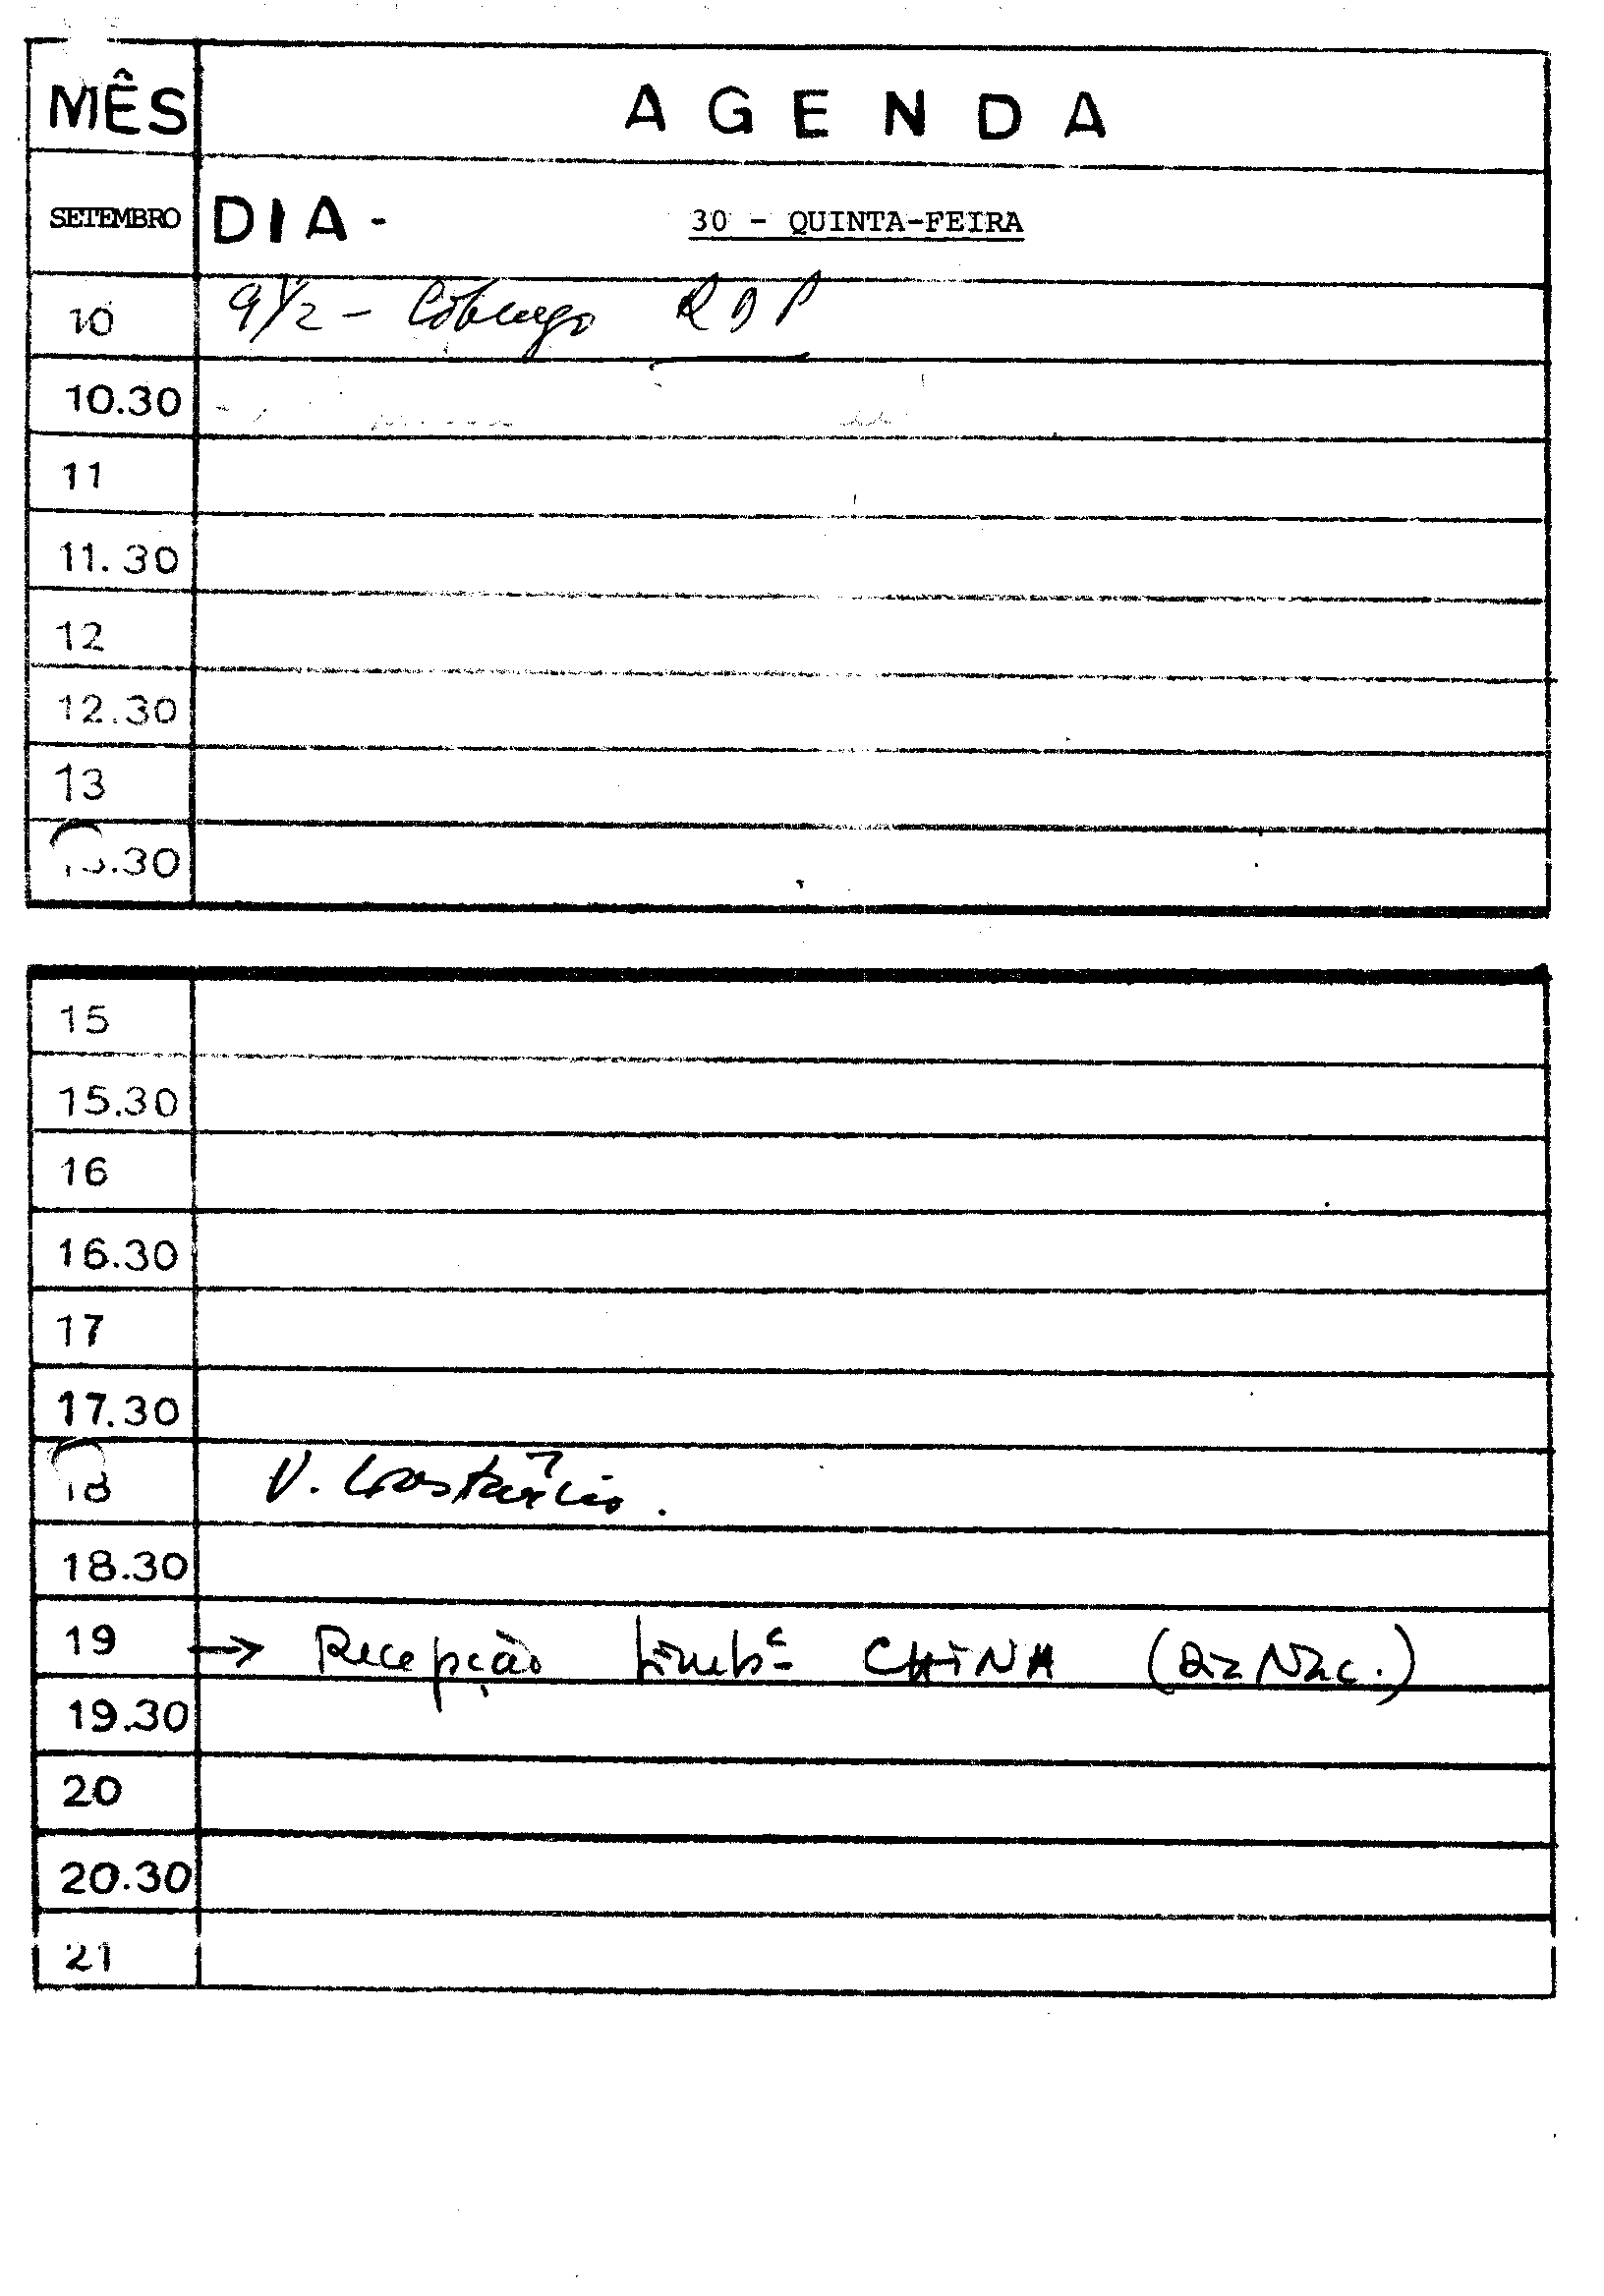 MÊS A G E N D A
SETEMBRO DIA - 30 - QUINTA-FEIRA
10 9 1/2 - RDP
10.30
11
11.30
12
12.30
13
13.30
15
15.30
16
16.30
17
17.30
18 V. Constâncio.
18.30
19 → Recepção CHINA (Nac.)
19.30
20
20.30
21